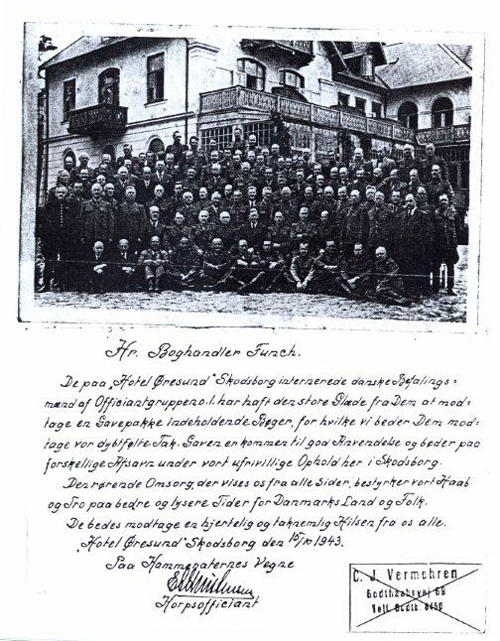 Hr. Boghandler Funch.
De paa „Hotel Øresund" Skodsborg internerede danske Befalings=
mænd af Officiantgruppen o. l. har haft den store Glæde fra Dem at mod=
tage en Gavepakke indeholdende Bøger, for hvilke vi beder Dem mod=
tage vor dybtfølte Tak. Gaven er kommen til god Anvendelse og bøder paa
forskellige Afsavn under vort ufrivillige Ophold her i Skodsborg.
Den rørende Omsorg, der vises os fra alle Sider, bestyrker vort Haab
og Tro paa bedre og lysere Tider for Danmarks Land og Folk.
De bedes modtage en hjertelig og taknemlig Hilsen fra os alle.
„Hotel Øresund" Skodsborg den 15/10 1943.
Paa Kammeraternes Vegne
Korpsofficiant
C. J. Vermehren
Godthaabsvej 68